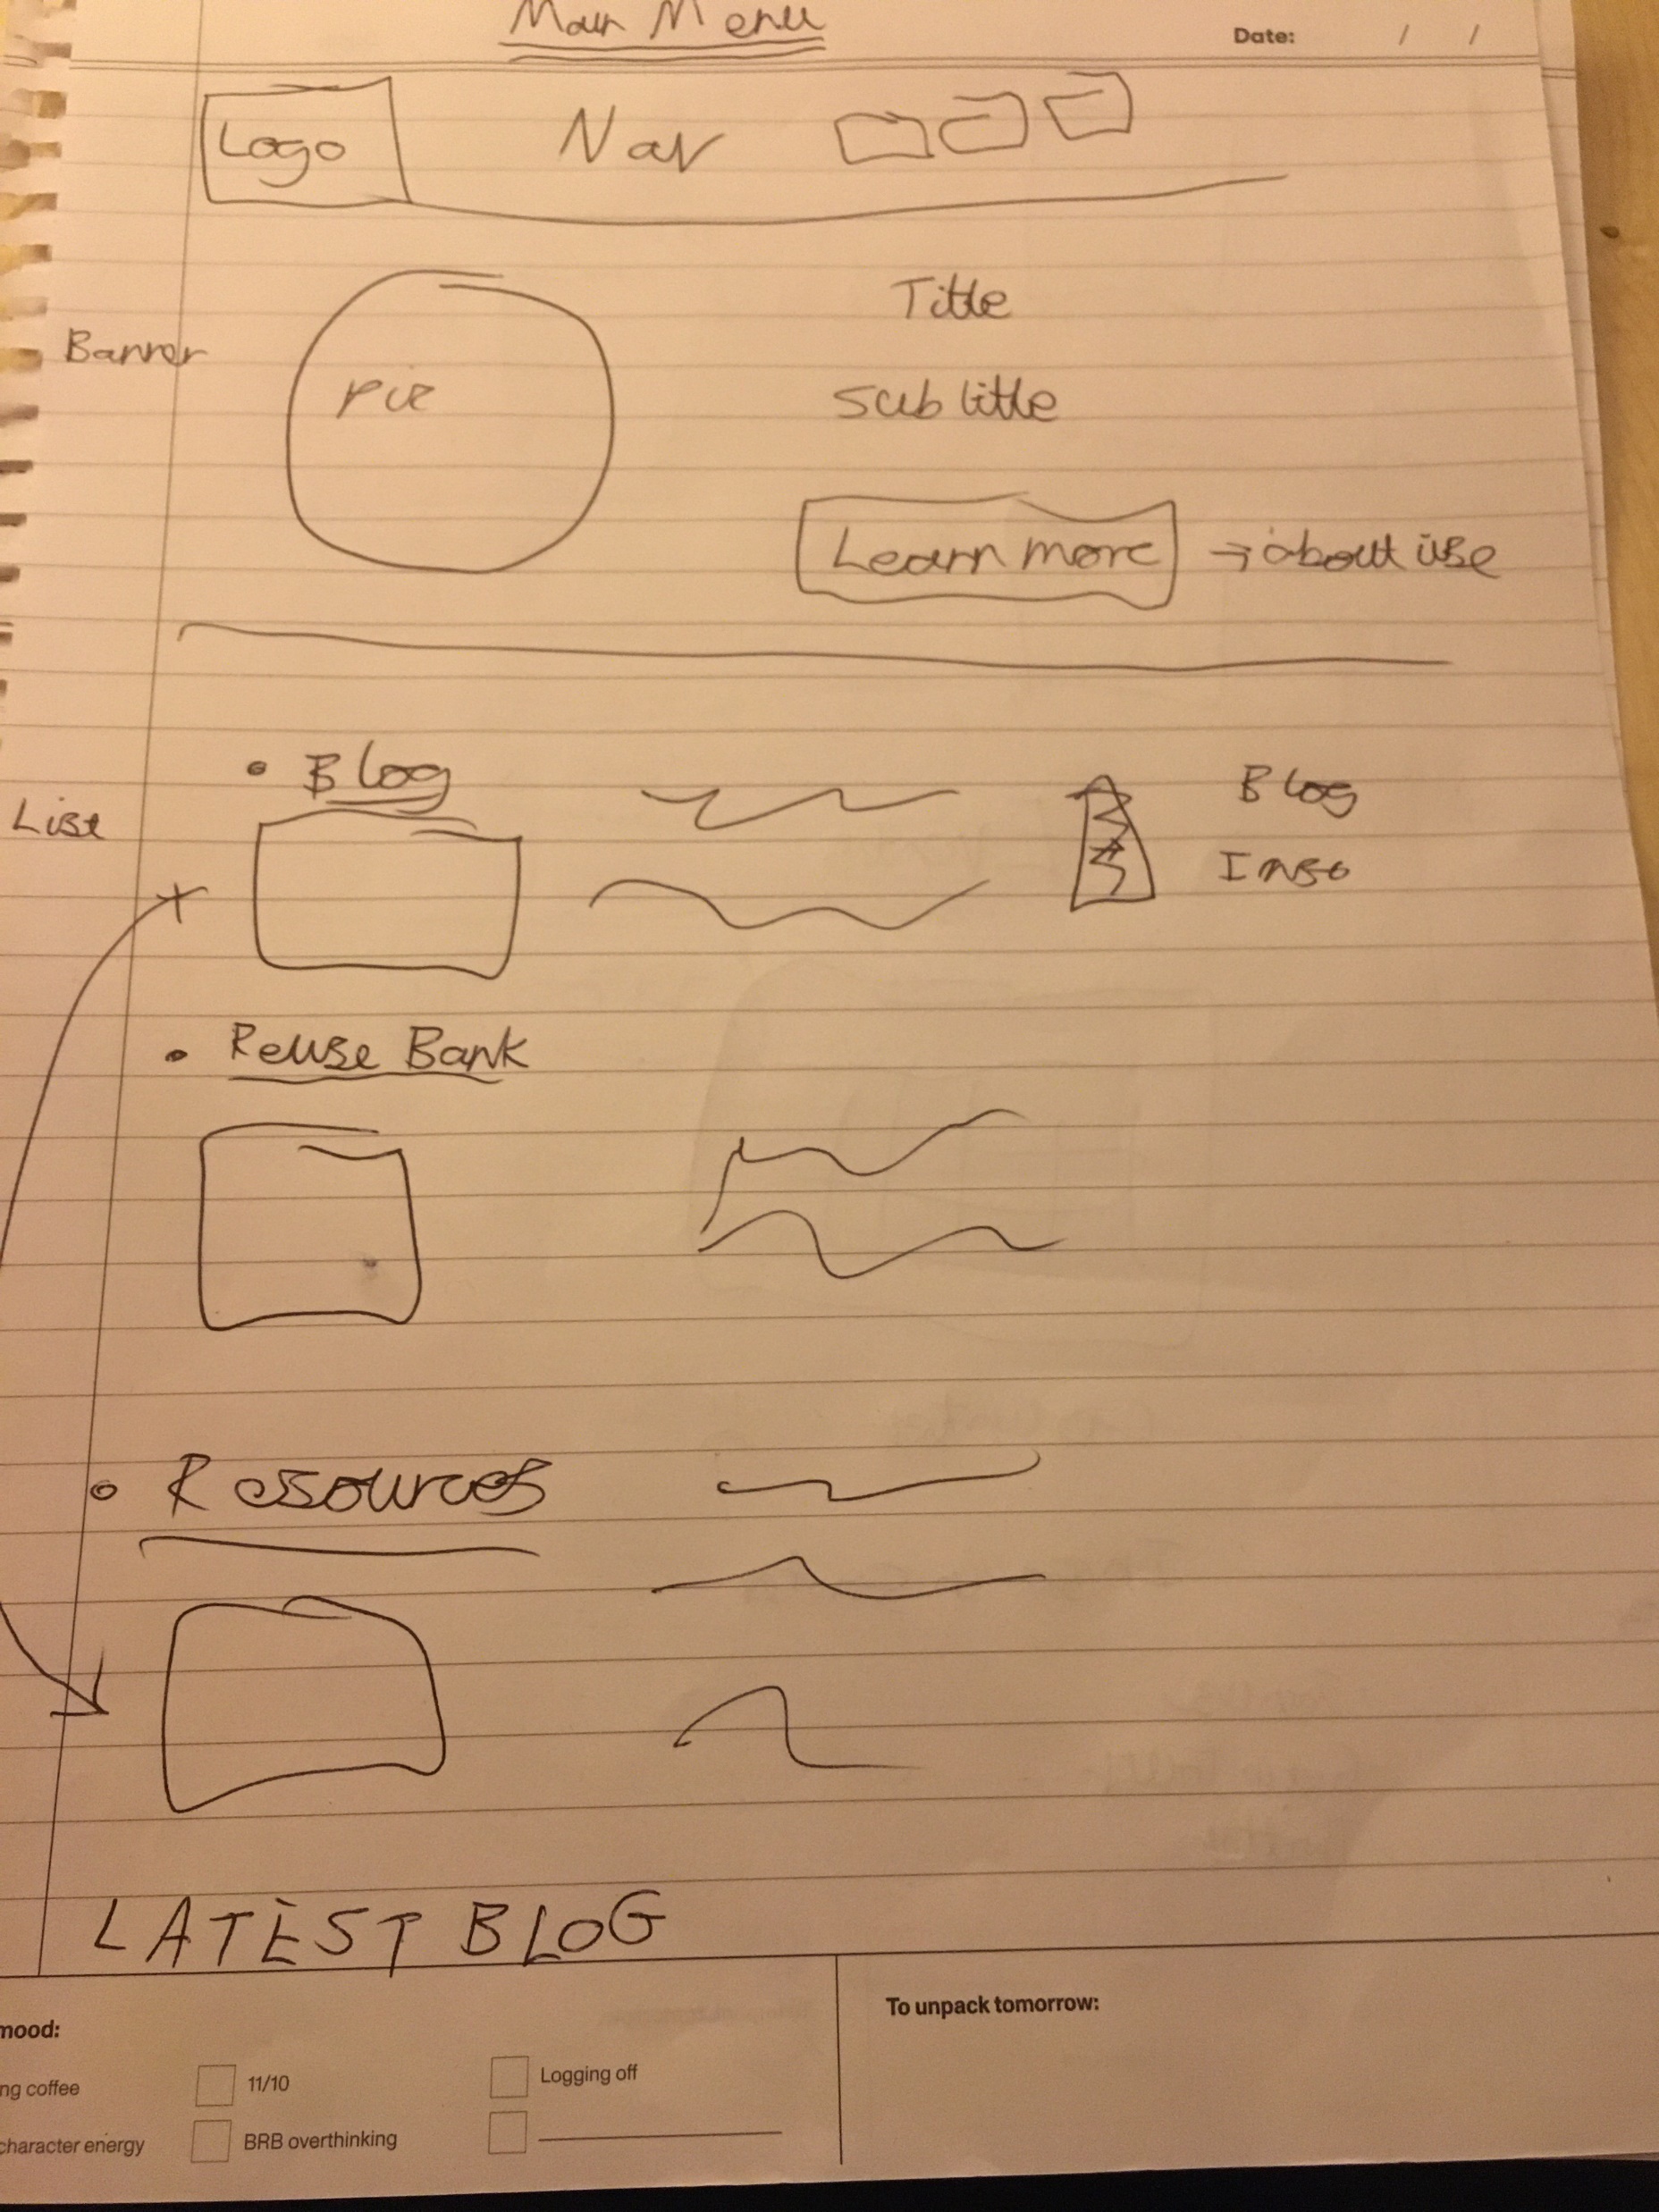 Main Menu
Date: / /
Logo Nav
Banner
Pic
Title
Subtitle
Learn more → about use
List
• Blog
Blog
Info
• Reuse Bank
• Resources
LATEST BLOG
mood:
To unpack tomorrow:
ng coffee
11/10
Logging off
character energy
BRB overthinking